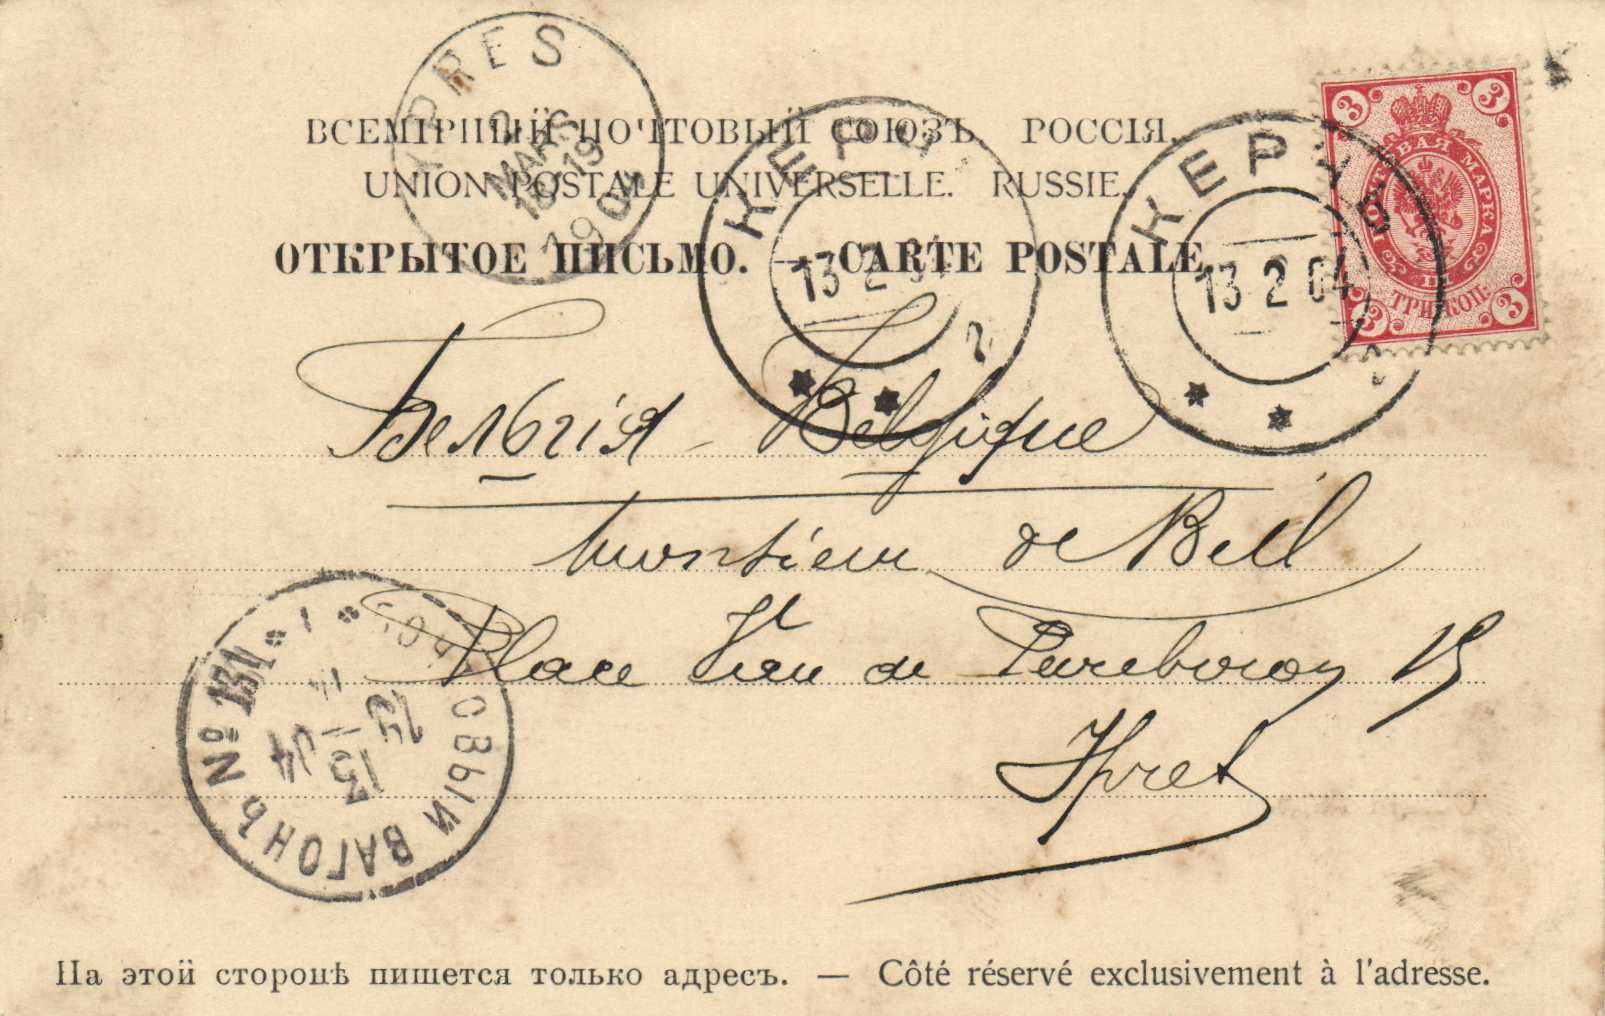 YPRES
2
MARS
18-19
1904
ВСЕМІРНЫЙ ПОЧТОВЫЙ СОЮЗЪ. РОССІЯ.
UNION POSTALE UNIVERSELLE. RUSSIE.
ОТКРЫТОЕ ПИСЬМО. — CARTE POSTALE
КЕРЧЬ
13 2 04
КЕРЧЬ
13 2 04
3 3
ПОЧТОВАЯ МАРКА
ТРИ КОП.
3 3
Бельгія - Belgique
Monsieur de Bell
Place Van de 19
Ypres
ПОЧТОВЫЙ ВАГОНЪ № 131
15
04
На этой сторонѣ пишется только адресъ. — Côté réservé exclusivement à l'adresse.